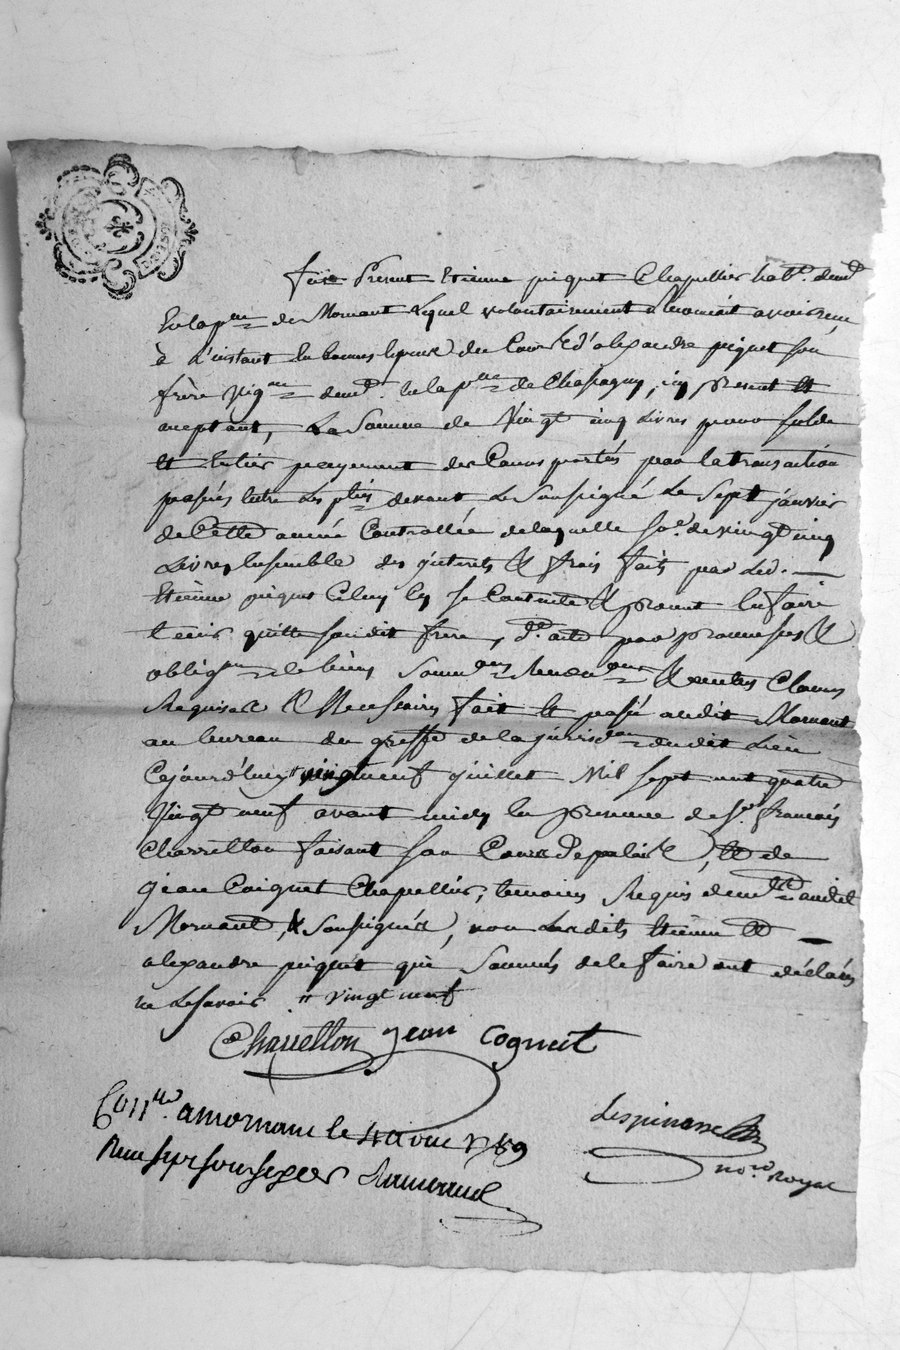 fut Present Etienne piquet Chapellier hab.t demt
En la p.sse de Mornant Lequel volontairement a Reconnu avoir reçu
à L'instant En bonnes Especes du Cours d'alexandre piquet son
frère vig.on demt. En la p.sse de Chassagny, icy present Et
aceptant, La Somme de Vingt cinq Livres pour solde
Et Entier payement des Causes portés par la transaction
passés Entre Les p.ties devant Le Soussigné Le Sept janvier
de Cette année Controllée de laquelle So.e de vingt cinq
Livres Ensemble des jnterets & frais faits par Led.
Etienne piquet Celuy cy se Contente & promet En faire
tenir quitte son dit frere, d.t acte par promesses &
oblig.on de biens Soum.ons Renon.ons & autres Clauses
Requises & Necessaires fait Et passé audit Mornant
au bureau du greffe de la jurisd.on dudit Lieu
Cejourd'huy vingt neuf juillet Mil Sept cent quatre
Vingt neuf avant midy En presence de S.r françois
Charretton faisant son Cours de palais, Et de
jean Coignet Chapellier, temoins Requis demt audit
Mornant, & Soussignés, non Lesdits Etienne Et
alexandre piquet qui Sommés de le faire ont déclarés
ne Le Savoir " vingt neuf
Charretton jean cogniet
Con.lé a mornant le 4 aout 1789
Reçu quinze sous
Lespinasse
no.re royal